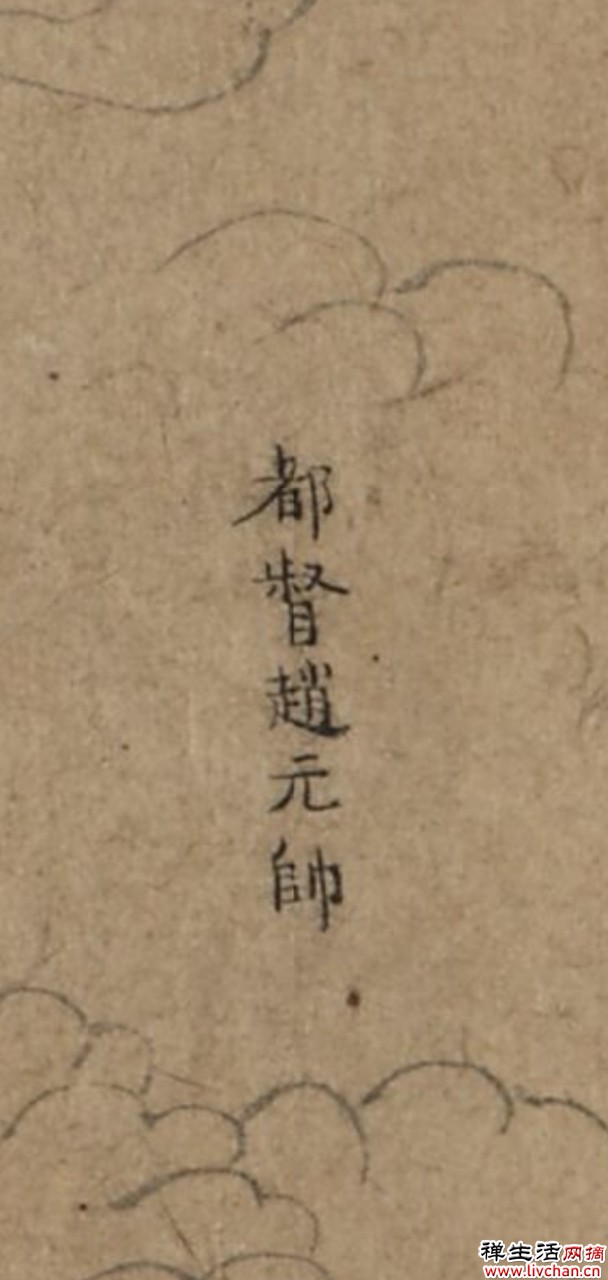 都督趙元帥
禅生活网摘
www.livchan.cn